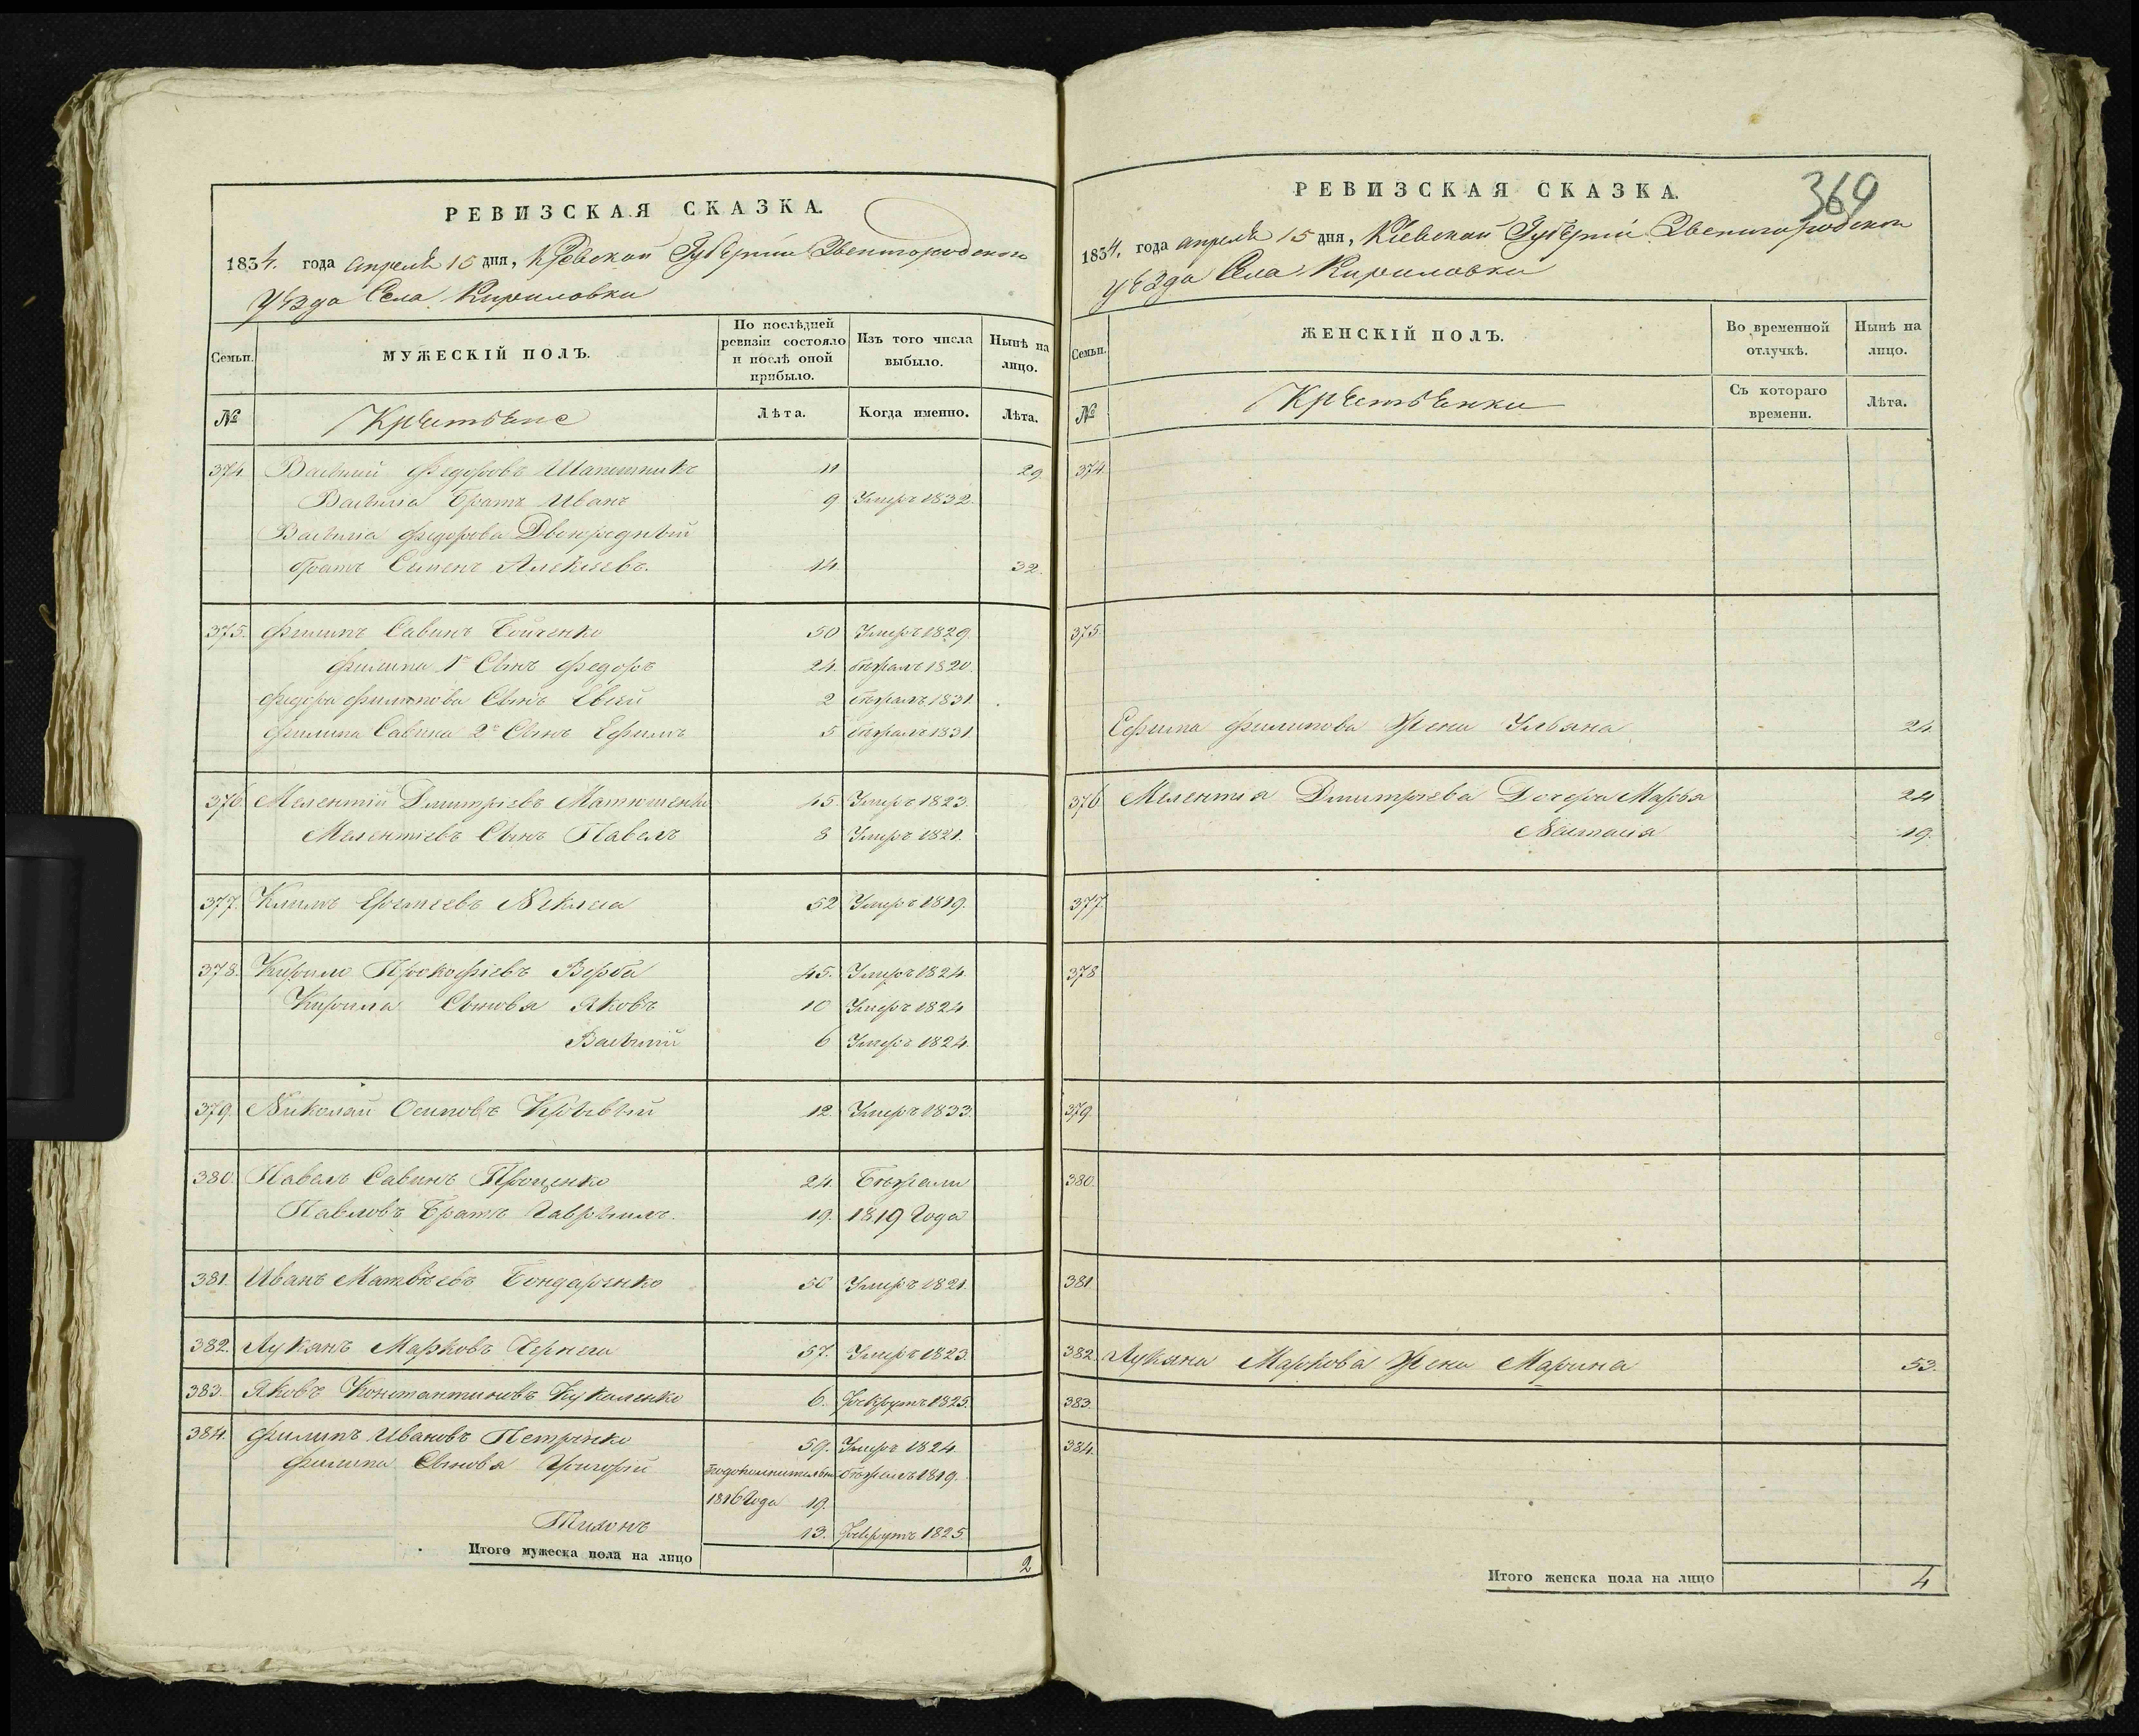 РЕВИЗСКАЯ СКАЗКА.
1834. года апреля 15 дня, Кіевской Губерніи Звенигородского
уѣзда Села Кириловки
Семьи. МУЖЕСКІЙ ПОЛЪ. По послѣдней ревизіи состояло и послѣ оной прибыло. Изъ того числа выбыло. Нынѣ на лицо.
№ Крестьяне Лѣта. Когда именно. Лѣта.
374. Василий Федоровъ 11 29.
Василия братъ Иванъ 9 Умеръ 1832.
Василия Федорова Двоюродный
братъ Семенъ Алексеевъ. 14. 32.
375. Филипъ Савинъ Бойченко 50 Умеръ 1829.
Филипа 1й Сынъ Федоръ 24. бежалъ 1820.
Федора Филипова Сынъ Евсей 2 бежалъ 1831.
Филипа Савина 2й Сынъ Ефимъ 5 бежалъ 1831.
376. Мелентий Дмитриевъ Матюшенко 45. Умеръ 1823.
Мелентиевъ Сынъ Павелъ 8 Умеръ 1821.
377. Климъ Некleса 52 Умеръ 1819.
378. Кирило Прокофиевъ Верба 45. Умеръ 1824.
Кирила Сыновья Яковъ 10 Умеръ 1824
Василий 6 Умеръ 1824.
379. Николай Осиповъ Кривый 12. Умеръ 1833.
380. Павелъ Савинъ Проценко 24. Бежали
Павловъ братъ Гаврилъ. 19. 1819 Года
381. Иванъ Матвѣевъ Бондаренко 50 Умеръ 1821.
382. Лукянъ Марковъ Чернега 57. Умеръ 1823.
383. Яковъ Константиновъ Кукаленко 6. Рекрутъ 1825.
384. Филипъ Ивановъ Петренко 59. Умеръ 1824.
Филипа Сыновья Григорий бежалъ 1819.
1816 Года 19.
Тихонъ 13. Рекрутъ 1825.
Итого мужеска пола на лицо 2
РЕВИЗСКАЯ СКАЗКА.
369
1834. года апреля 15 дня, Кіевской Губерніи Звенигородского
уѣзда Села Кириловки
Семьи. ЖЕНСКІЙ ПОЛЪ. Во временной отлучкѣ. Нынѣ на лицо.
№ Крестьянки Съ котораго времени. Лѣта.
374.
375.
Ефима Филипова Жена Ульяна 24.
376. Мелентия Дмитриева Дочери Марья 24
Настасия 19.
377.
378
379.
380.
381.
382. Лукяна Маркова Жена Марина 53.
383.
384.
Итого женска пола на лицо 4